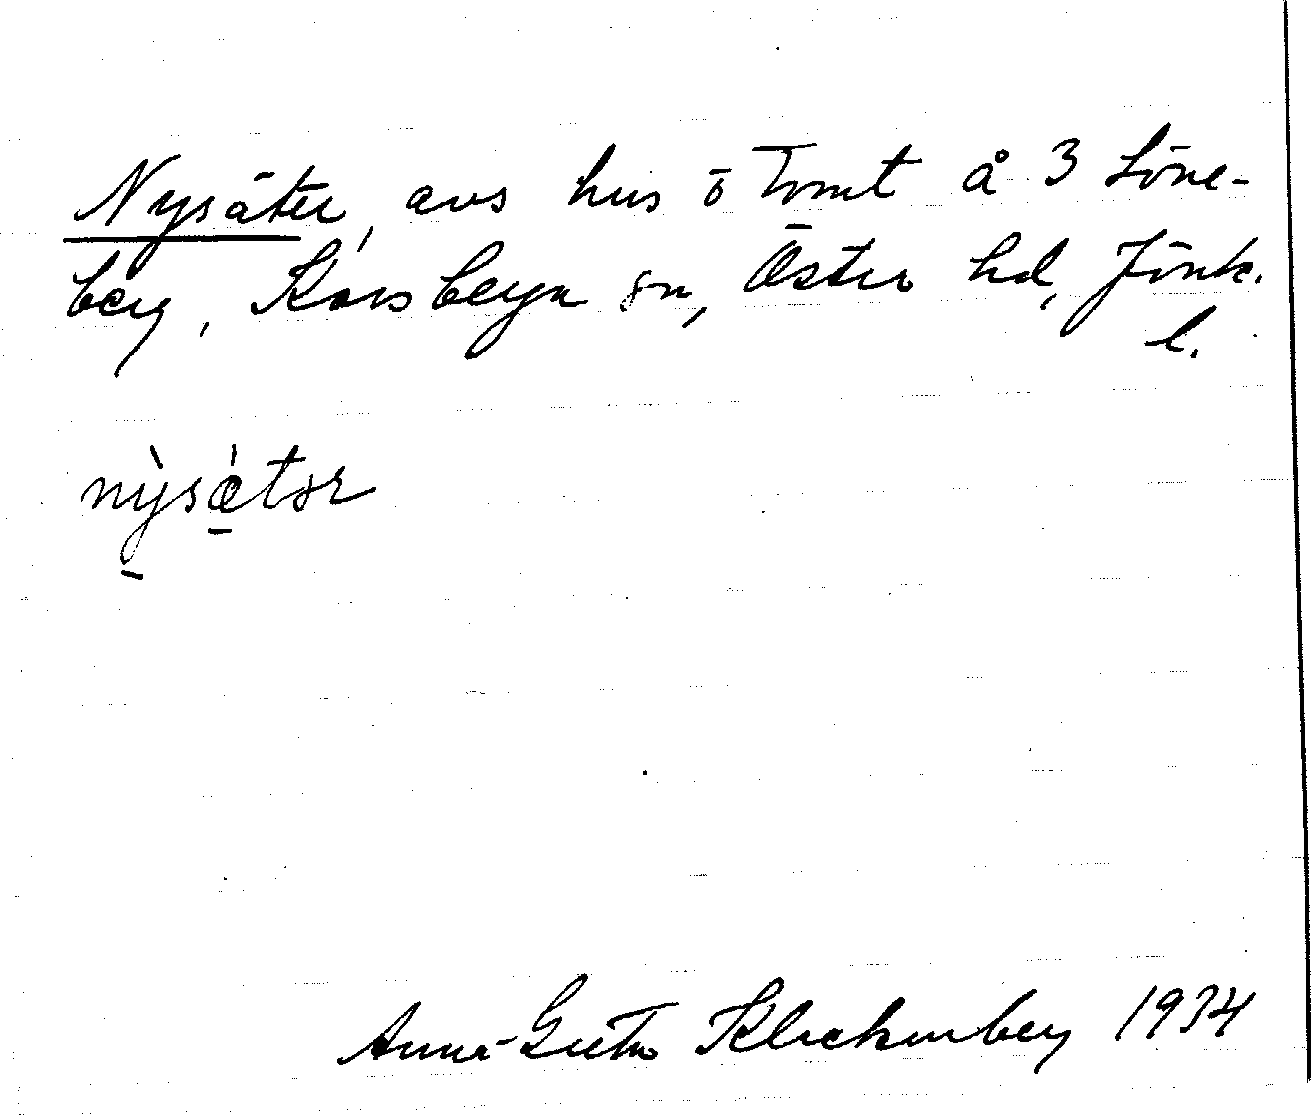 Nysäter, avs hus o tomt å 3 Löne-
berg, Korsberga sn, Östra hd, Jönk.
l.
nỳsǽtər
Anna-Greta Kleckenberg 1934